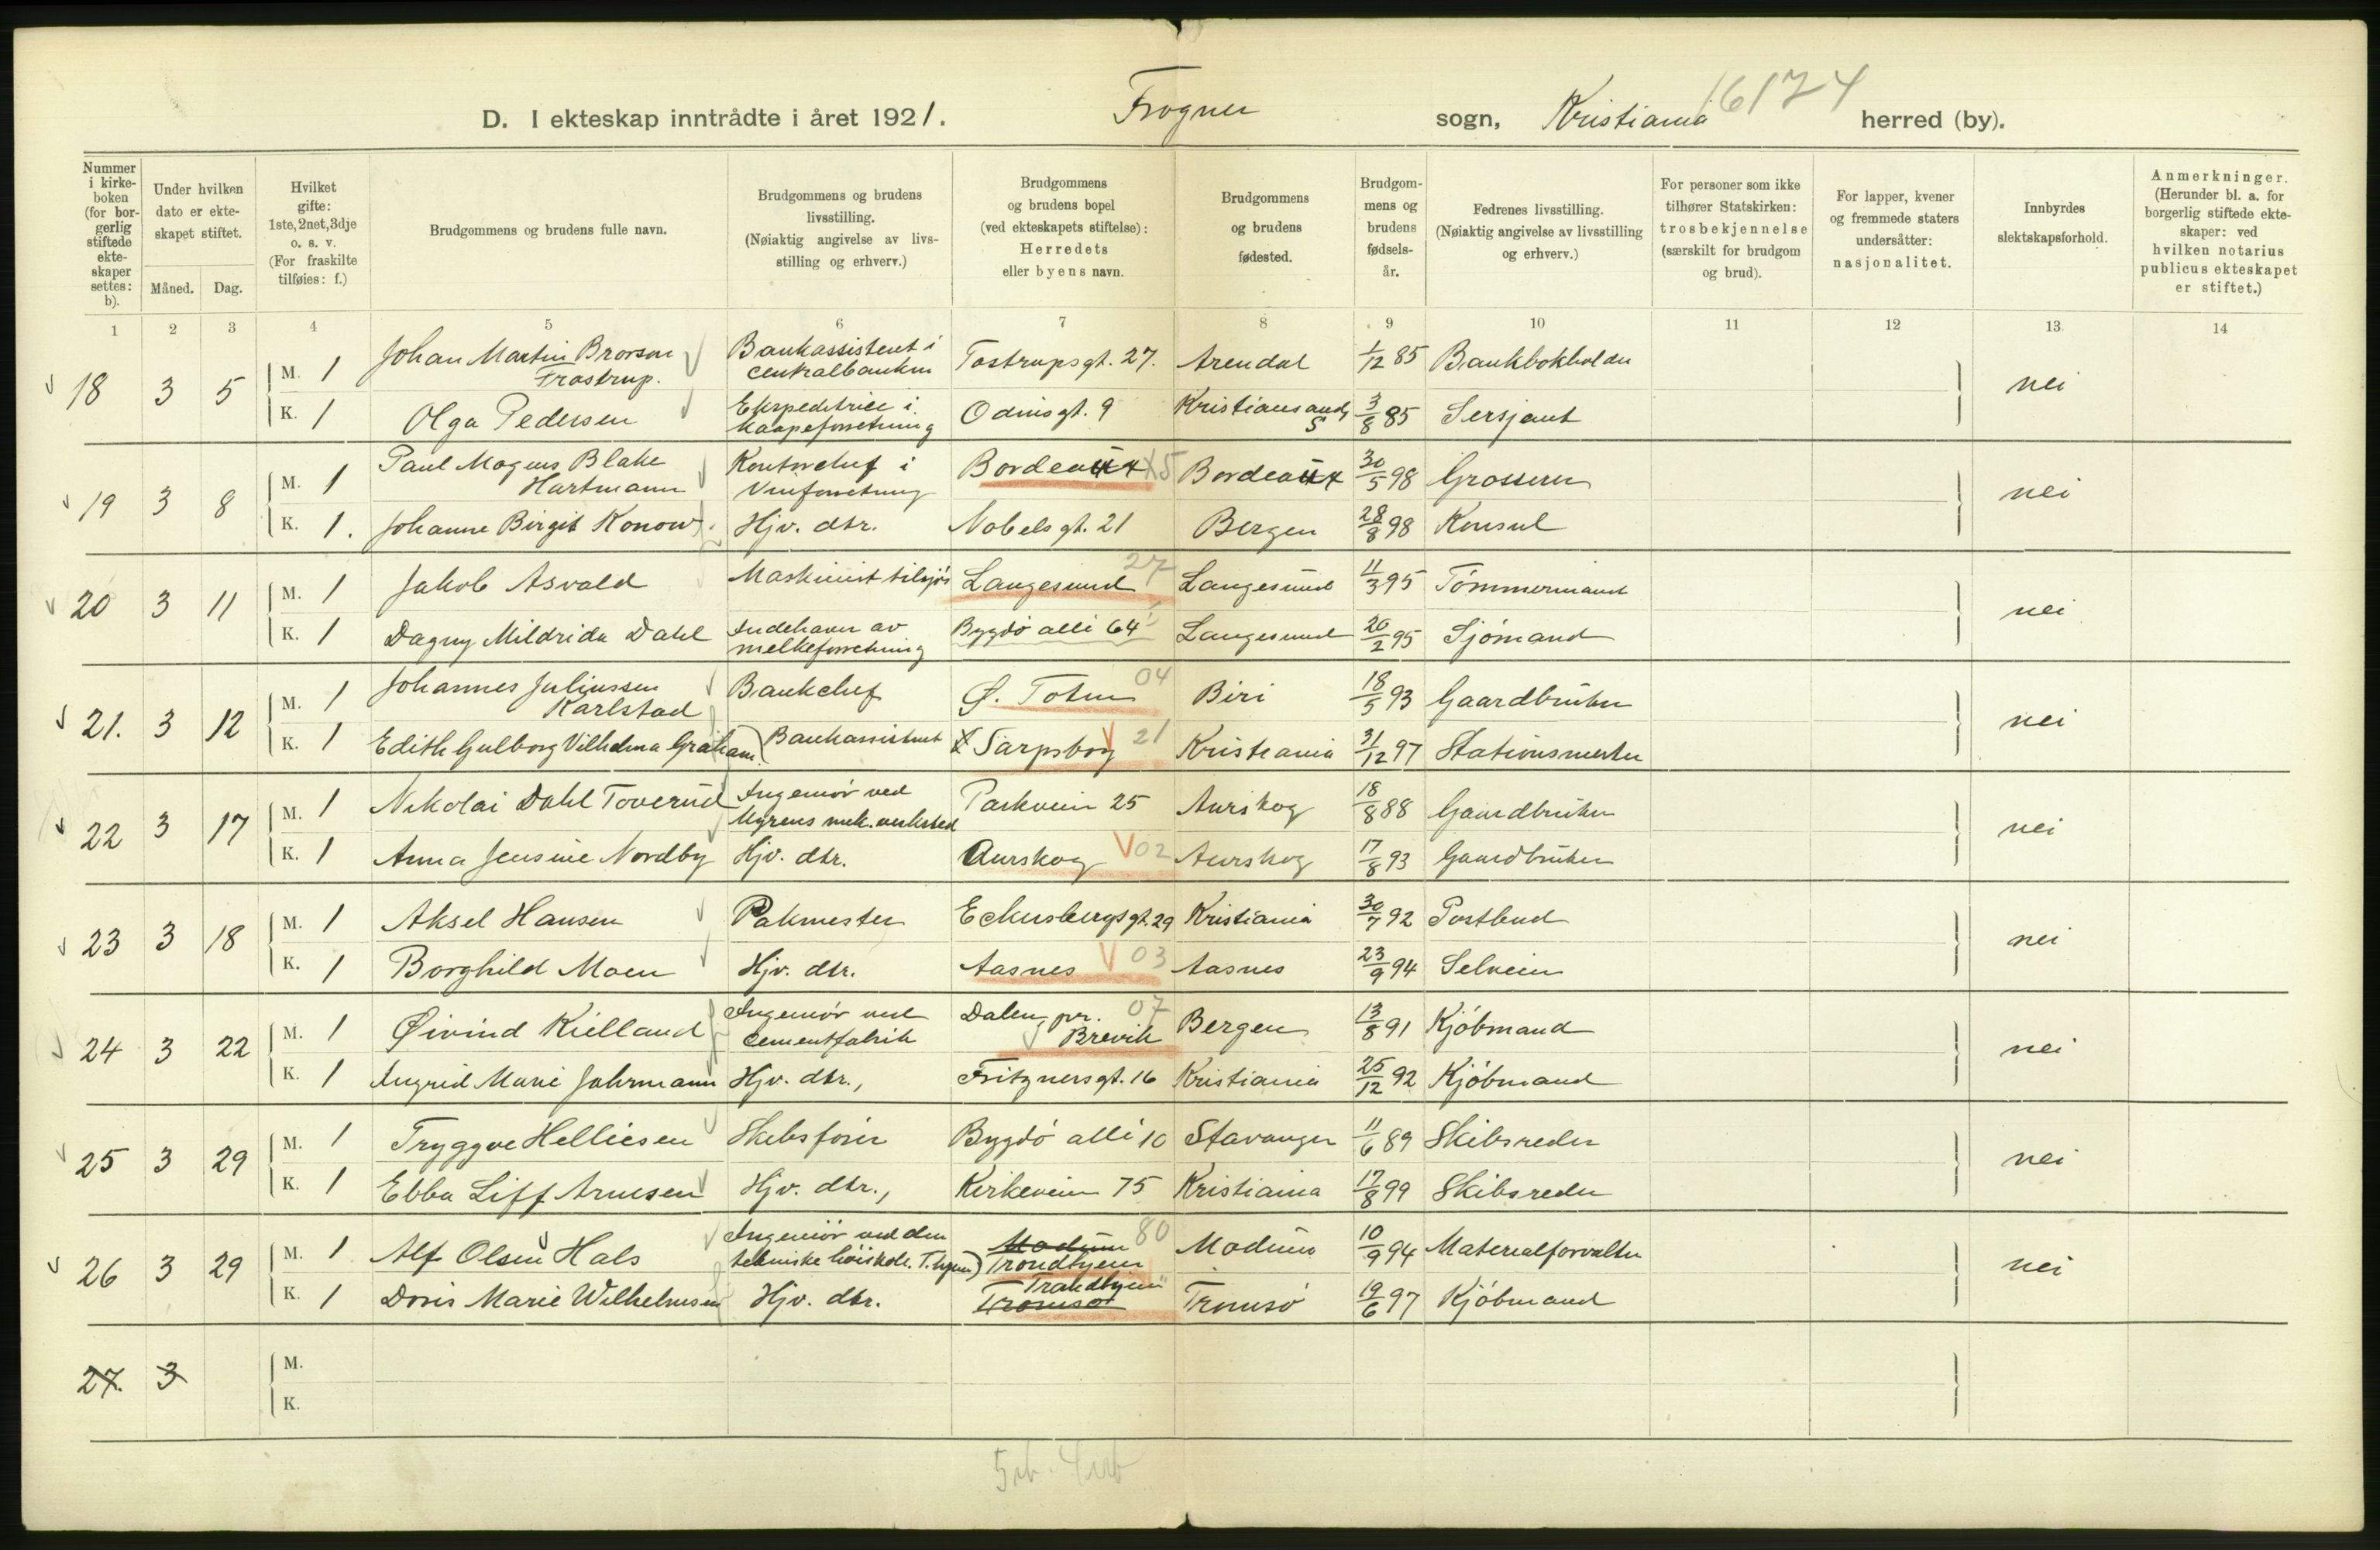 D. I ekteskap inntrådte i året 1921. Frogner sogn, Kristiania 16174 herred (by).
Nummer i kirkeboken (for borgerlig stiftede ekteskaper settes: b).
Under hvilken dato er ekteskapet stiftet.
Måned. Dag.
Hvilket gifte: 1ste, 2net, 3dje o. s. v. (For fraskilte tilføies: f.)
Brudgommens og brudens fulle navn.
Brudgommens og brudens livsstilling. (Nøiaktig angivelse av livsstilling og erhverv.)
Brudgommens og brudens bopel (ved ekteskapets stiftelse): Herredets eller byens navn.
Brudgommens og brudens fødested.
Brudgommens og brudens fødselsår.
Fedrenes livsstilling. (Nøiaktig angivelse av livsstilling og erhverv.)
For personer som ikke tilhører Statskirken: trosbekjennelse (særskilt for brudgom og brud).
For lapper, kvener og fremmede staters undersåtter: nasjonalitet.
Innbyrdes slektskapsforhold.
Anmerkninger. (Herunder bl. a. for borgerlig stiftede ekteskaper: ved hvilken notarius publicus ekteskapet er stiftet.)
1 2 3 4 5 6 7 8 9 10 11 12 13 14
18 3 5 M. 1 Johan Martin Brorson Frostrup. Bankassistent i Centralbanken Tostrupsgt. 27. Arendal 1/12 85 Bankbokholder nei
K. 1 Olga Pedersen Ekspeditrice i kaapeforretning Odinsgt. 9 Kristiansand S 3/8 85 Sersjant
19 3 8 M. 1 Paul Mogens Blake Hartmann Kontorchef i Vinforretning Bordeaux X5 Bordeaux 30/5 98 Grosserer nei
K. 1. Johanne Birgit Konow. Hjv. dtr. Nobelsgt. 21 Bergen 28/8 98 Konsul
20 3 11 M. 1 Jakob Asvald Maskinist tilsjøs Langesund 27 Langesund 11/3 95 Tømmermand nei
K. 1 Dagny Mildrida Dahl Indehaver av melkeforretning Bygdø alle 64 Langesund 20/2 95 Sjømand
21. 3 12 M. 1 Johannes Juliussen Karlstad Bankchef Ø. Toten 04 Biri 18/5 93 Gaardbruker nei
K. 1 Edith Gulborg Vilhelma Graham. Bankassistent Sarpsborg 21 Kristiania 31/12 97 Stationsmester
22 3 17 M. 1 Nikolai Dahl Toverud Ingeniør ved Myrens mek. verksted Parkveien 25 Aurskog 18/8 88 Gaardbruker nei
K. 1 Anna Jensine Nordby Hjv. dtr. Aurskog 02 Aurskog 17/8 93 Gaardbruker
23 3 18 M. 1 Aksel Hansen Pakmester Eckersbergsgt. 29 Kristiania 30/7 92 Postbud nei
K. 1 Borghild Moen Hjv. dtr. Aasnes 03 Aasnes 23/9 94 Selveier
24 3 22 M. 1 Øivind Kielland Ingeniør ved Cementfabrik Dalen, pr. Brevik 07 Bergen 13/8 91 Kjøbmand nei
K. 1 Ingrid Marie Jahrmann Hjv. dtr., Fritznersgt. 16 Kristiania 25/12 92 Kjøbmand
25 3 29 M. 1 Tryggve Helliesen Skibsfører Bygdø alle 10 Stavanger 11/6 89 Skibsreder nei
K. 1 Ebba Liff Arnesen Hjv. dtr., Kirkeveien 75 Kristiania 17/8 99 Skibsreder
26 3 29 M. 1 Alf Olsen Hals Ingeniør ved den tekniske høiskole. T.hjem) Modum 80 Trondhjem Modum 10/9 94 Materialforvalter nei
K. 1 Doris Marie Wilhelmsen Hjv. dtr. Trondhjem Tromsø Tromsø 19/6 97 Kjøbmand
27. 3 M.
K.